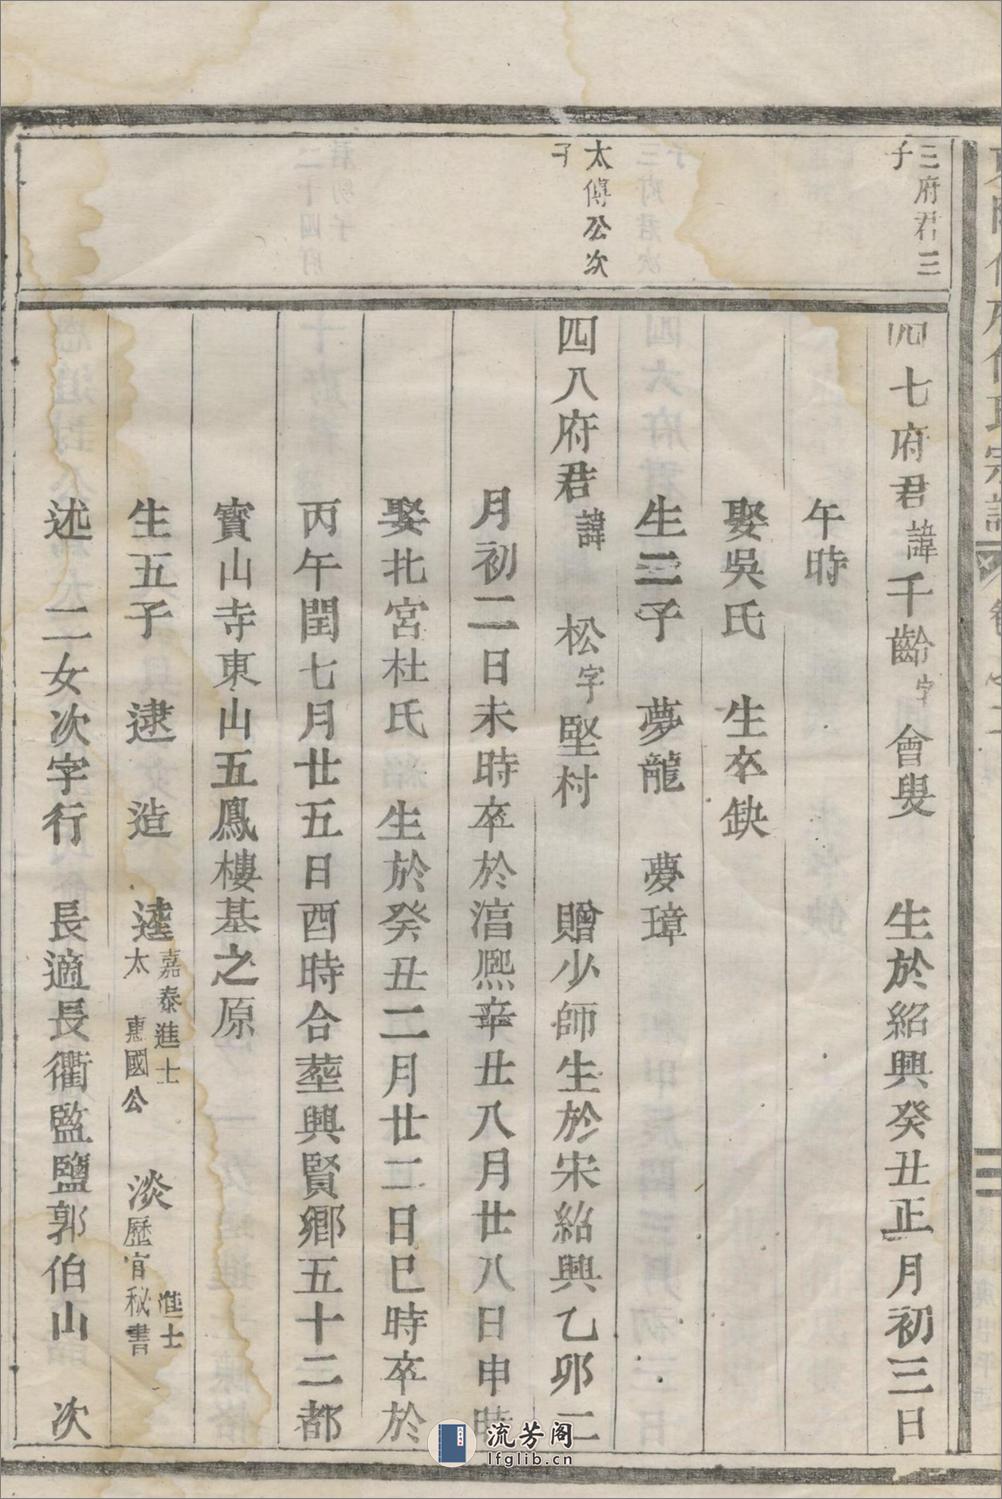 三府君三
子
四七府君諱千齡字會叟 生於紹興癸丑正月初三日
午時
娶吳氏 生卒缺
生二子 夢龍 夢璋
太傅公次
子
四八府君諱松字堅村 贈少師生於宋紹興乙卯二
月初二日未時卒於淳熙辛丑八月廿八日申時
娶北宮杜氏 生於癸丑二月廿二日巳時卒於
丙午閏七月廿五日酉時合塟興賢鄉五十二都
寶山寺東山五鳳樓基之原
生五子 逮 造 逵嘉泰進士
太 惠國公 淡 進士
歷官秘書
述 二女次字行 長適長衢監鹽郭伯山 次
流芳阁
lfglib.cn